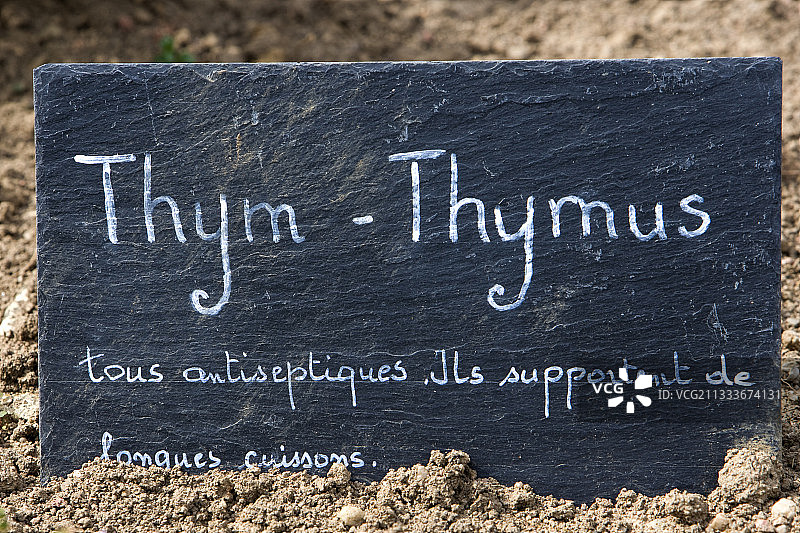 Thym - Thymus
tous antiseptiques. Ils supportent de
longues cuissons.
VCG211333674131